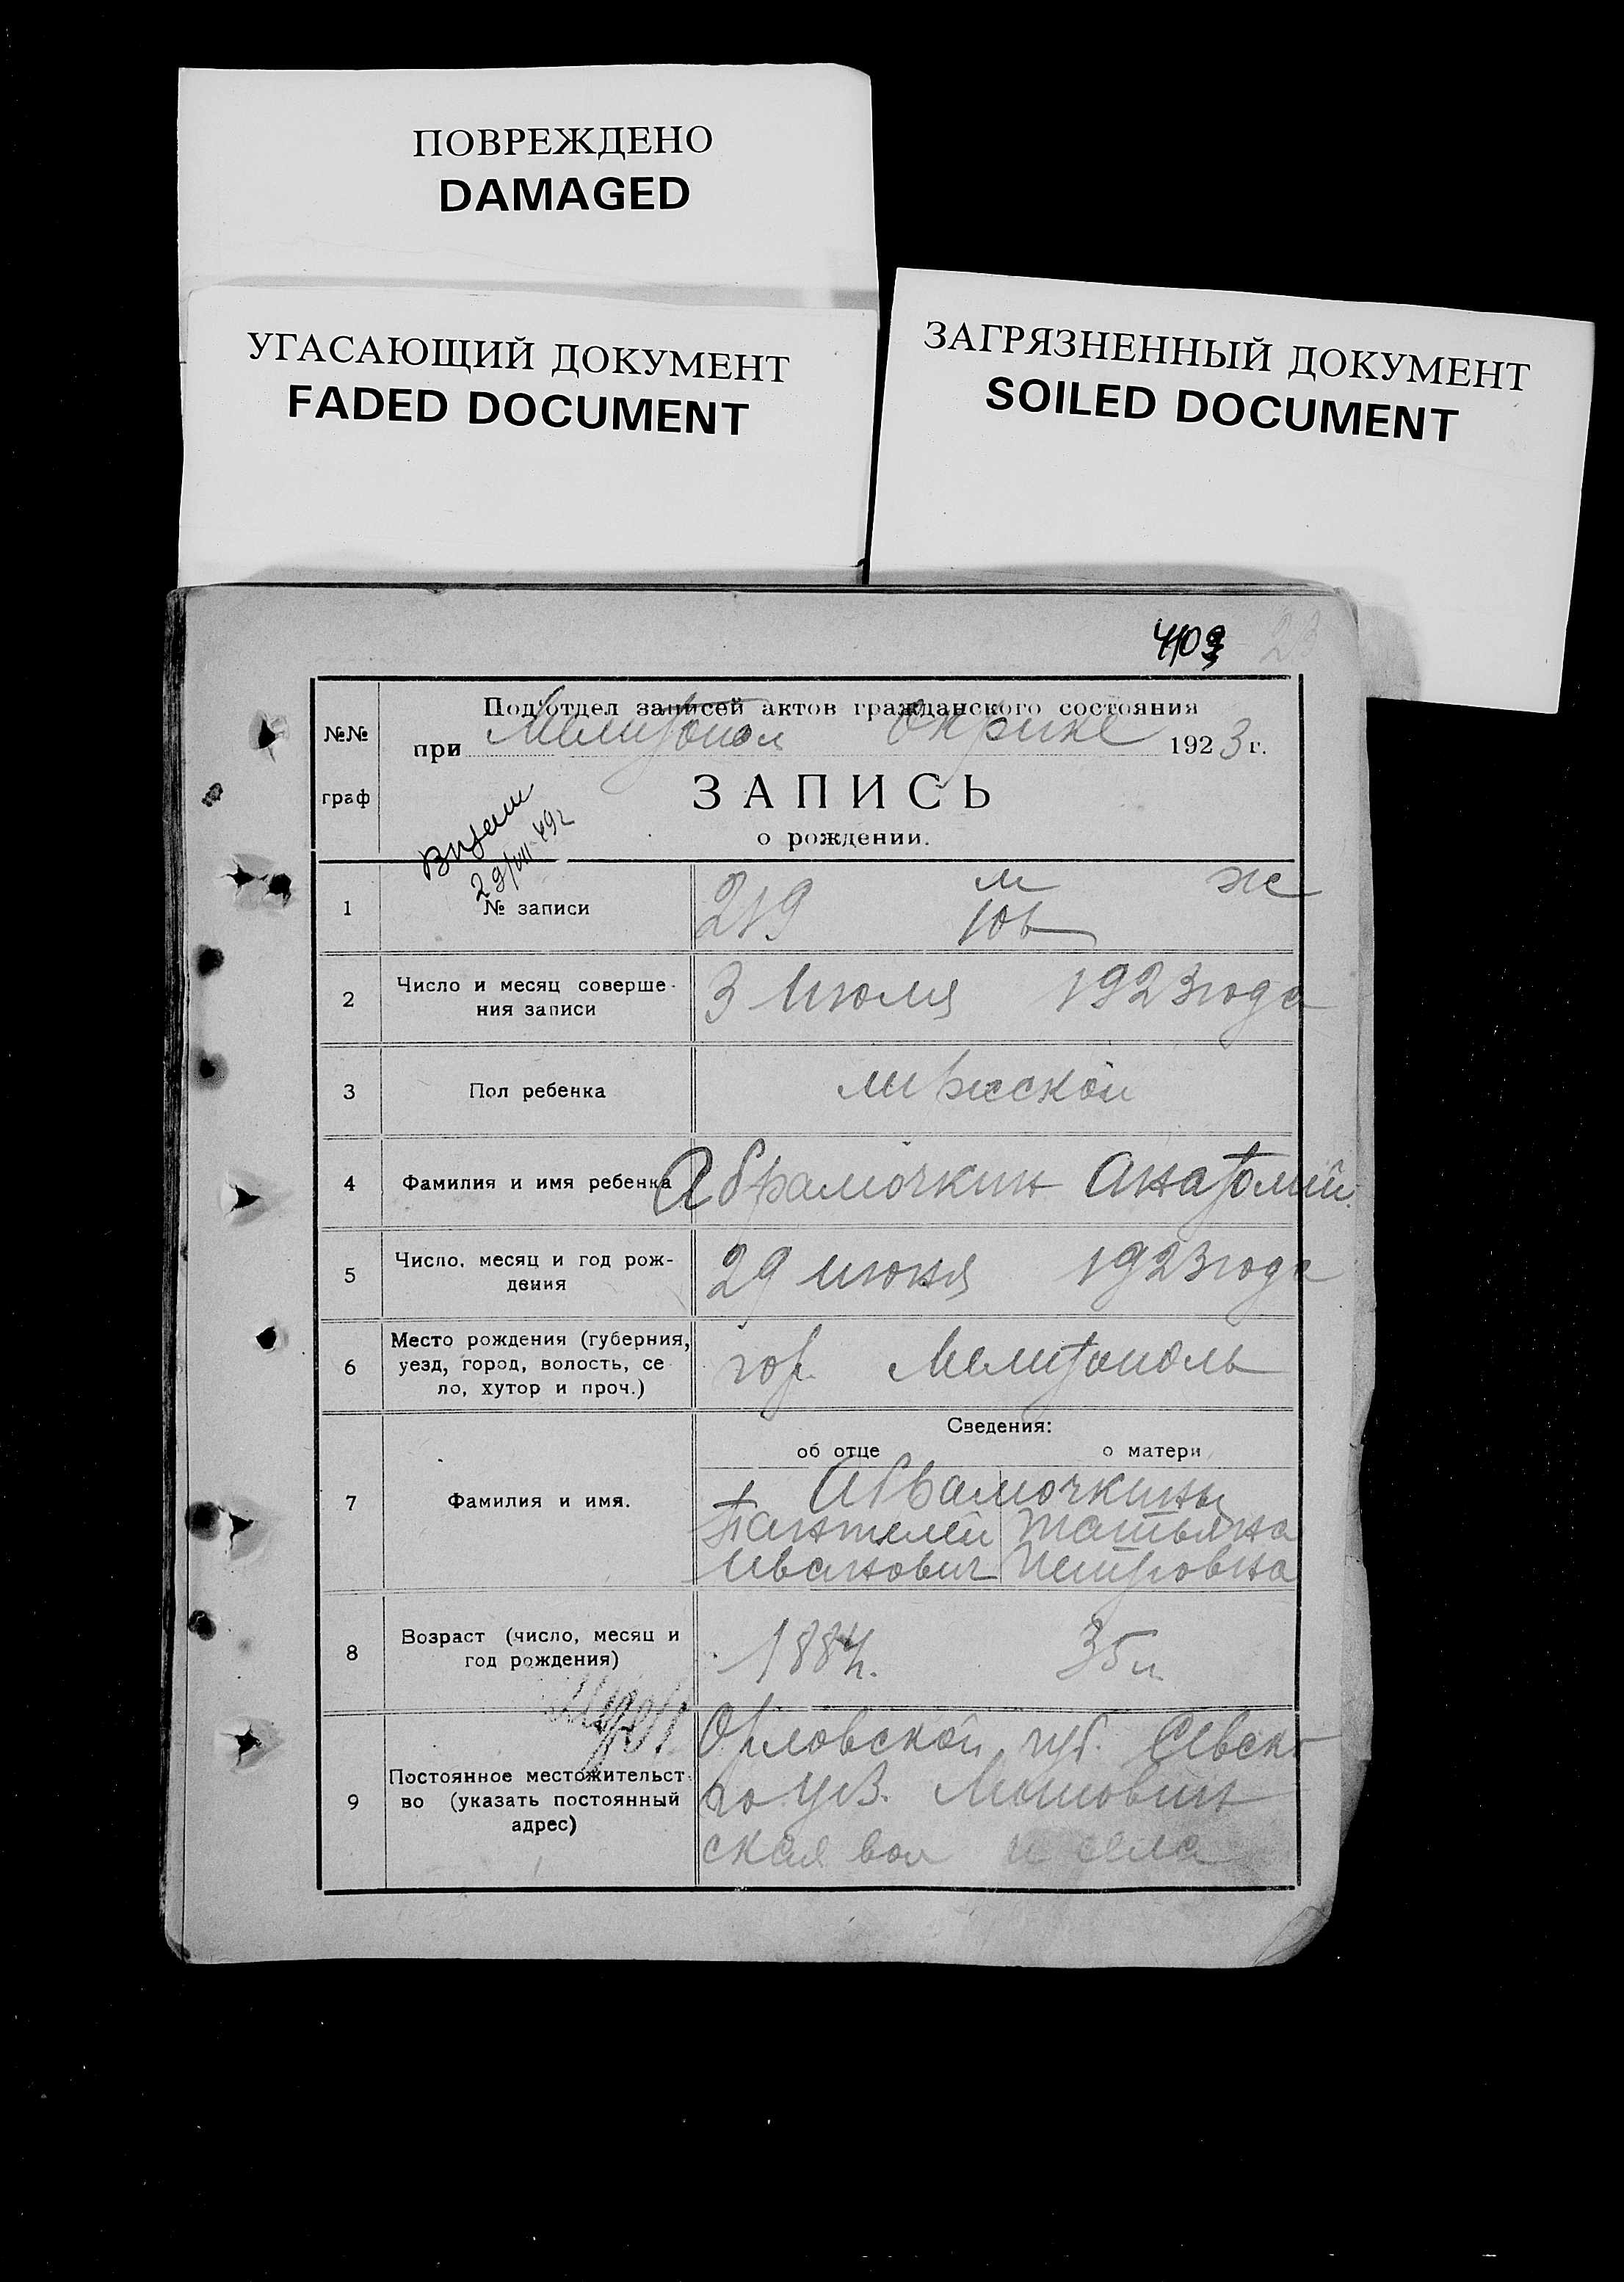 ПОВРЕЖДЕНО
DAMAGED
УГАСАЮЩИЙ ДОКУМЕНТ
FADED DOCUMENT
ЗАГРЯЗНЕННЫЙ ДОКУМЕНТ
SOILED DOCUMENT
4103 23
№№ граф
Под'отдел записей актов гражданского состояния
при Мелитопол Окрике 1923 г.
ЗАПИСЬ
о рождении.
29/VIII 49г
м ж
1 № записи 219 106
2 Число и месяц соверше-
ния записи 3 Июля 1923 года
3 Пол ребенка мужской
4 Фамилия и имя ребенка Абрамочкин Анатолий.
5 Число, месяц и год рож-
дения 29 июня 1923 года
6 Место рождения (губерния,
уезд, город, волость, се
ло, хутор и проч.) гор. Мелитополь
Сведения:
об отце о матери
7 Фамилия и имя. Абрамочкины
Пантелей Татьяна
Иванович Петровна
8 Возраст (число, месяц и
год рождения) 1884г. 35 л.
9 Постоянное местожительст
во (указать постоянный
адрес)
Орловской губ. Севско
го уез.
ская вол и села